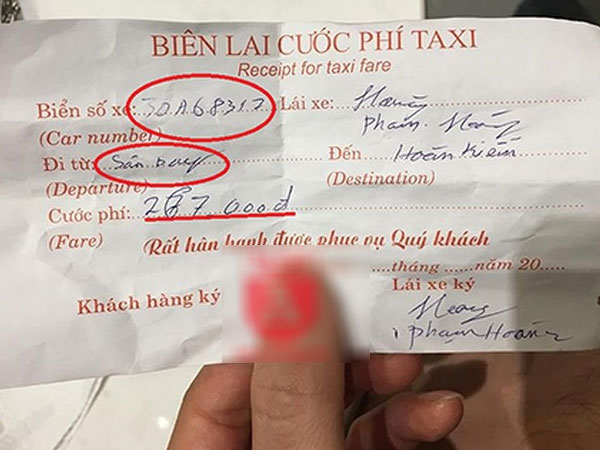 BIÊN LAI CƯỚC PHÍ TAXI
Receipt for taxi fare
Biển số xe: 30A68317 Lái xe:
(Car number) Phạm Hoàng
Đi từ: Sân bay Đến Hoàn Kiếm
(Departure) (Destination)
Cước phí: 287.000đ
(Fare) Rất hân hạnh được phục vụ Quý khách
tháng năm 20
Khách hàng ký Lái xe ký
Phạm Hoàng